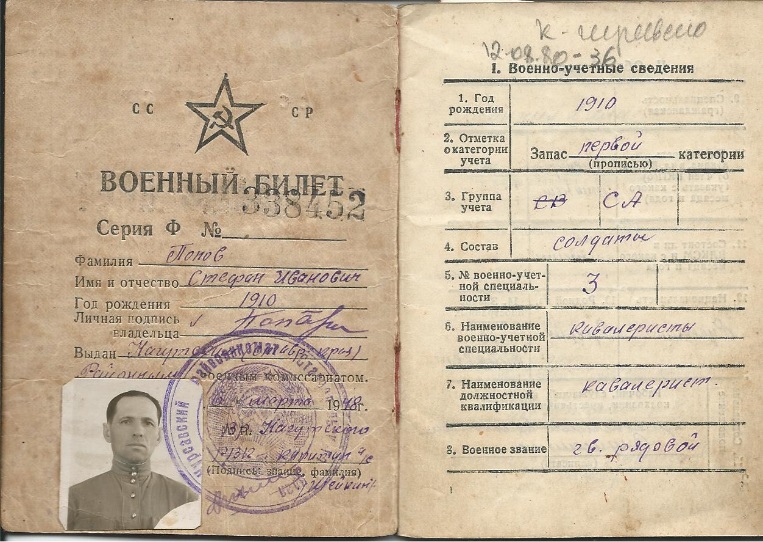 СС СР
ВОЕННЫЙ БИЛЕТ
338452
Серия Ф №
Фамилия Попов
Имя и отчество Стефан Иванович
Год рождения 1910
Личная подпись
владельца
Выдан
Районным военным комиссариатом.
марта 1948г.
(Подпись, звание, фамилия)
12.08.80-36
1. Военно-учетные сведения
1. Год рождения 1910
2. Отметка о категории учета Запас первой категории
(прописью)
3. Группа учета СВ СА
4. Состав солдаты
5. № военно-учет-ной специаль-ности 3
6. Наименование военно-учетной специальности кавалеристы
7. Наименование должностной квалификации кавалерист.
8. Военное звание гв. рядовой